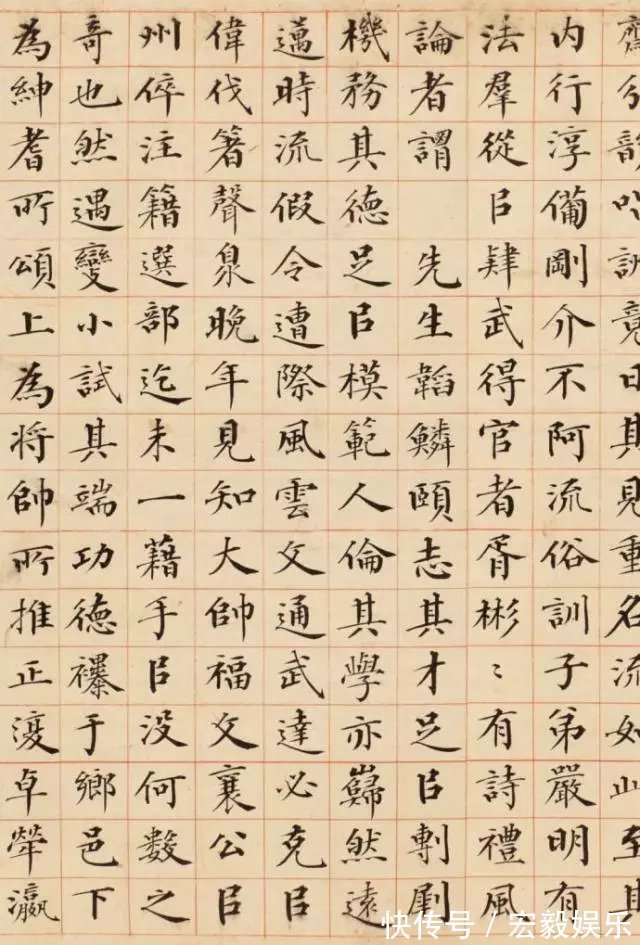 竟日其見重名流如山至其
内行淳備剛介不阿流俗訓子弟嚴明有
法羣從㠯肆武得官者胥彬〻有詩禮風
論者謂 先生韜鱗頤志其才足㠯剸劇
機務其德足㠯模範人倫其學亦巋然遠
邁時流假令遭際風雲文通武達必克㠯
偉伐箸聲臮晚年見知大帥福文襄公㠯
州倅注籍選部迄未一藉手㠯没何數之
奇也然遇變小試其端功德襮于鄉邑下
為紳耆所頌上為將帥所推正濅卓犖瀛
快传号/宏毅娱乐